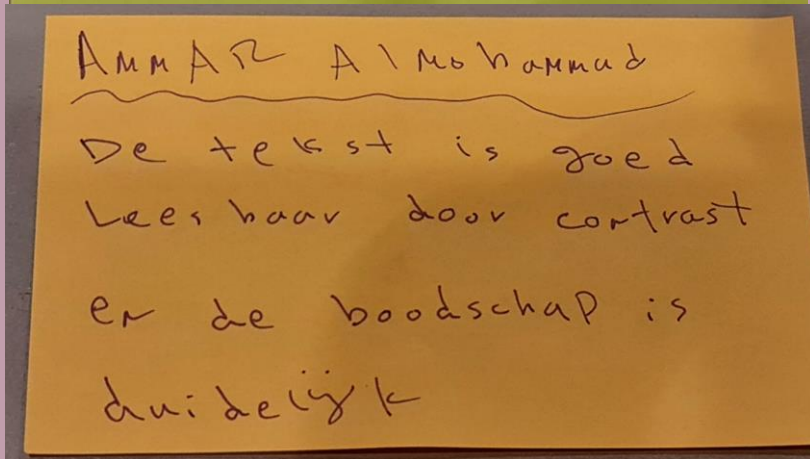 Ammar Almohammad
De tekst is goed
Leesbaar door contrast
en de boodschap is
duidelijk